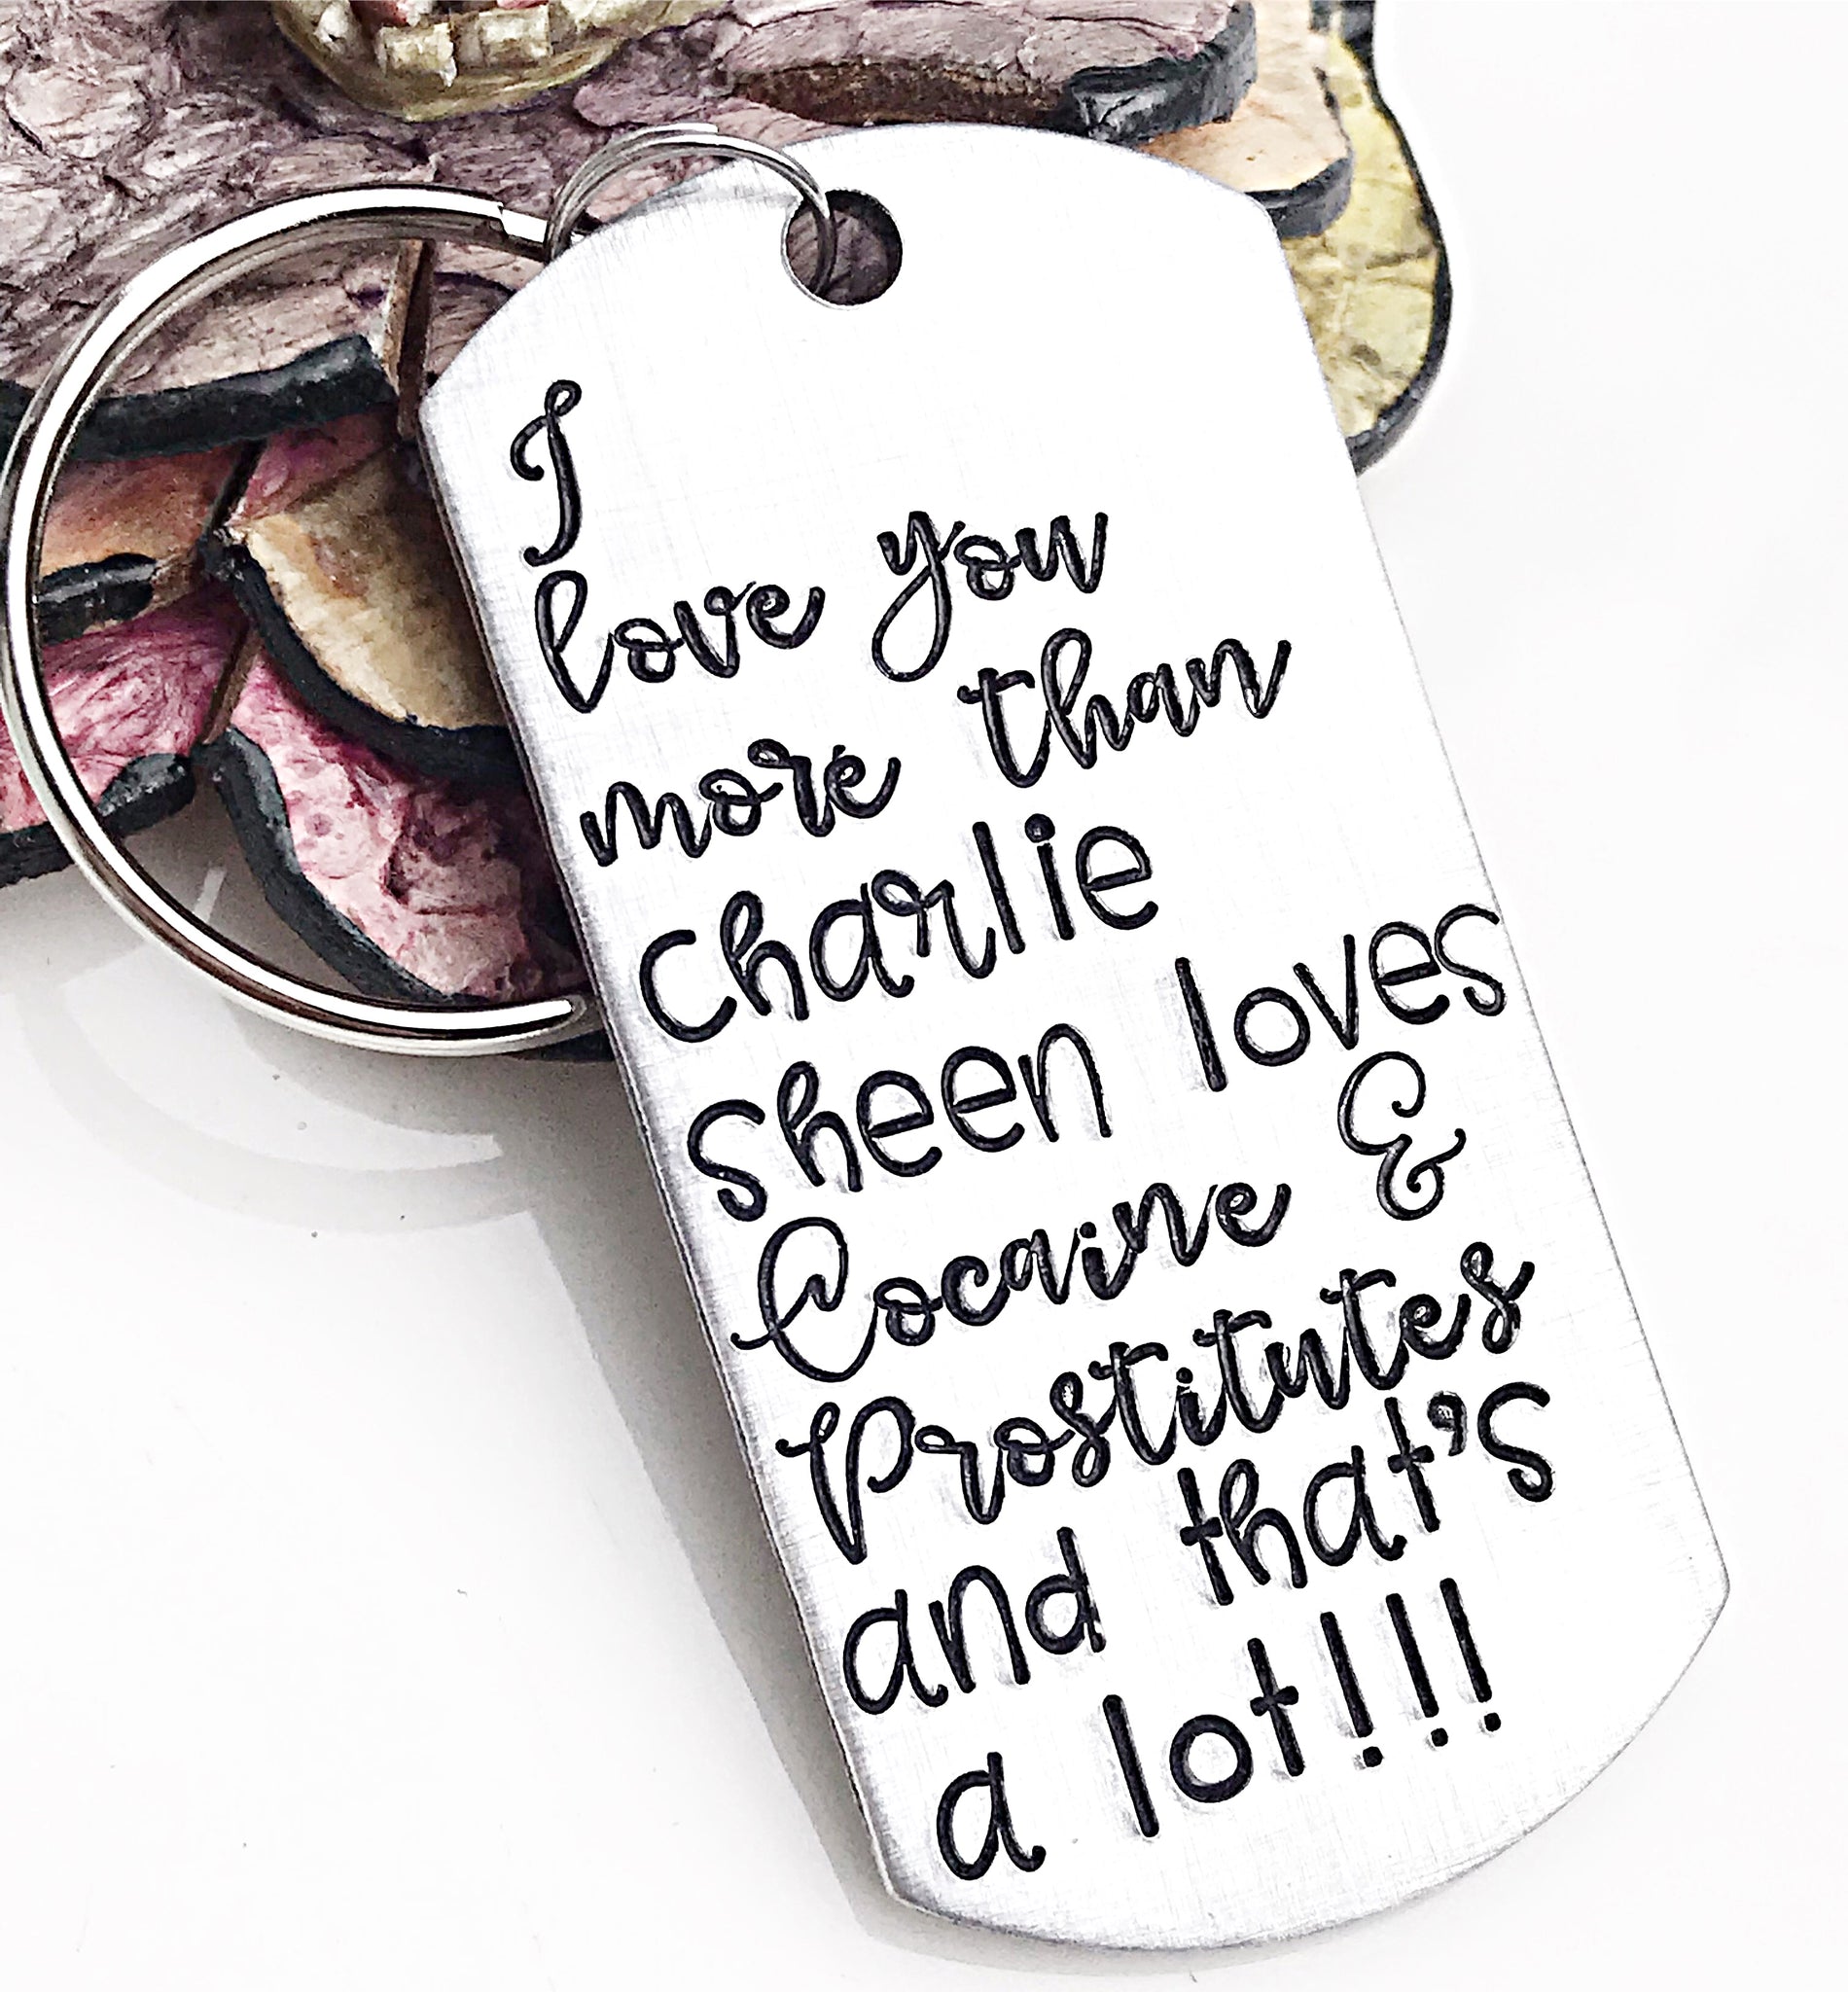 I
love you
more than
charlie
sheen loves
Cocaine &
Prostitutes
and that's
a lot!!!